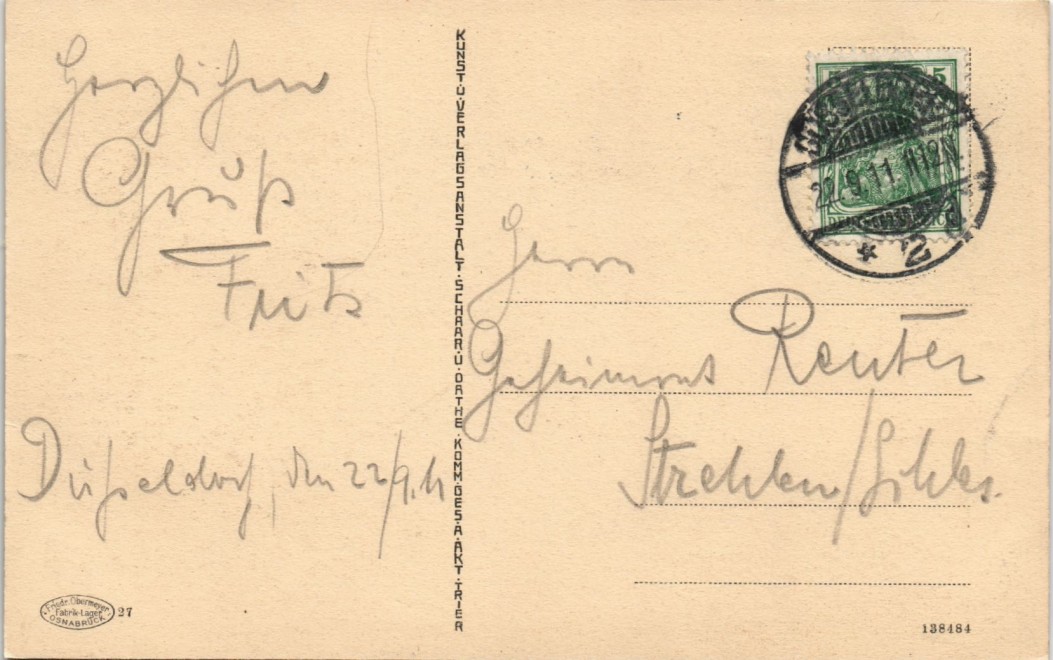 Herzlichen
Gruß
Fritz
Düsseldorf, den 22/9.11
KUNST.U.VERLAGSANSTALT.SCHAAR.U.DATHE.KOMM.GES.A.AKT.TRIER
5
DÜSSELDORF
22.9.11.1112N.
* 2
Herrn
Geheimrat Reuter
Strehlen/Schles.
Friedr. Obermeyer
Fabrik-Lager
OSNABRÜCK
27
138484